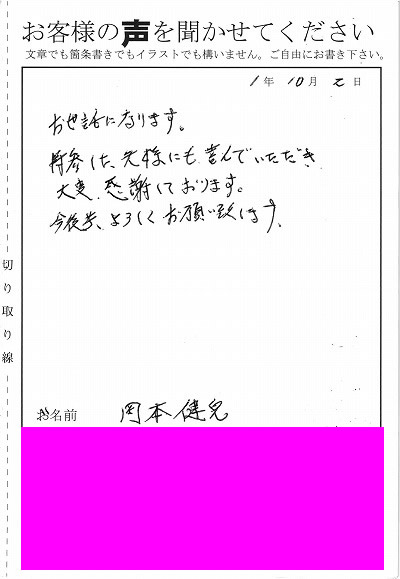 お客様の声を聞かせてください
文章でも箇条書きでもイラストでも構いません。ご自由にお書き下さい。
1年10月2日
お世話になります。
持参した、先様にも喜んでいただき
大変、感謝しております。
今後共、よろしくお願い致します。
切り取り線
お名前 岡本健児